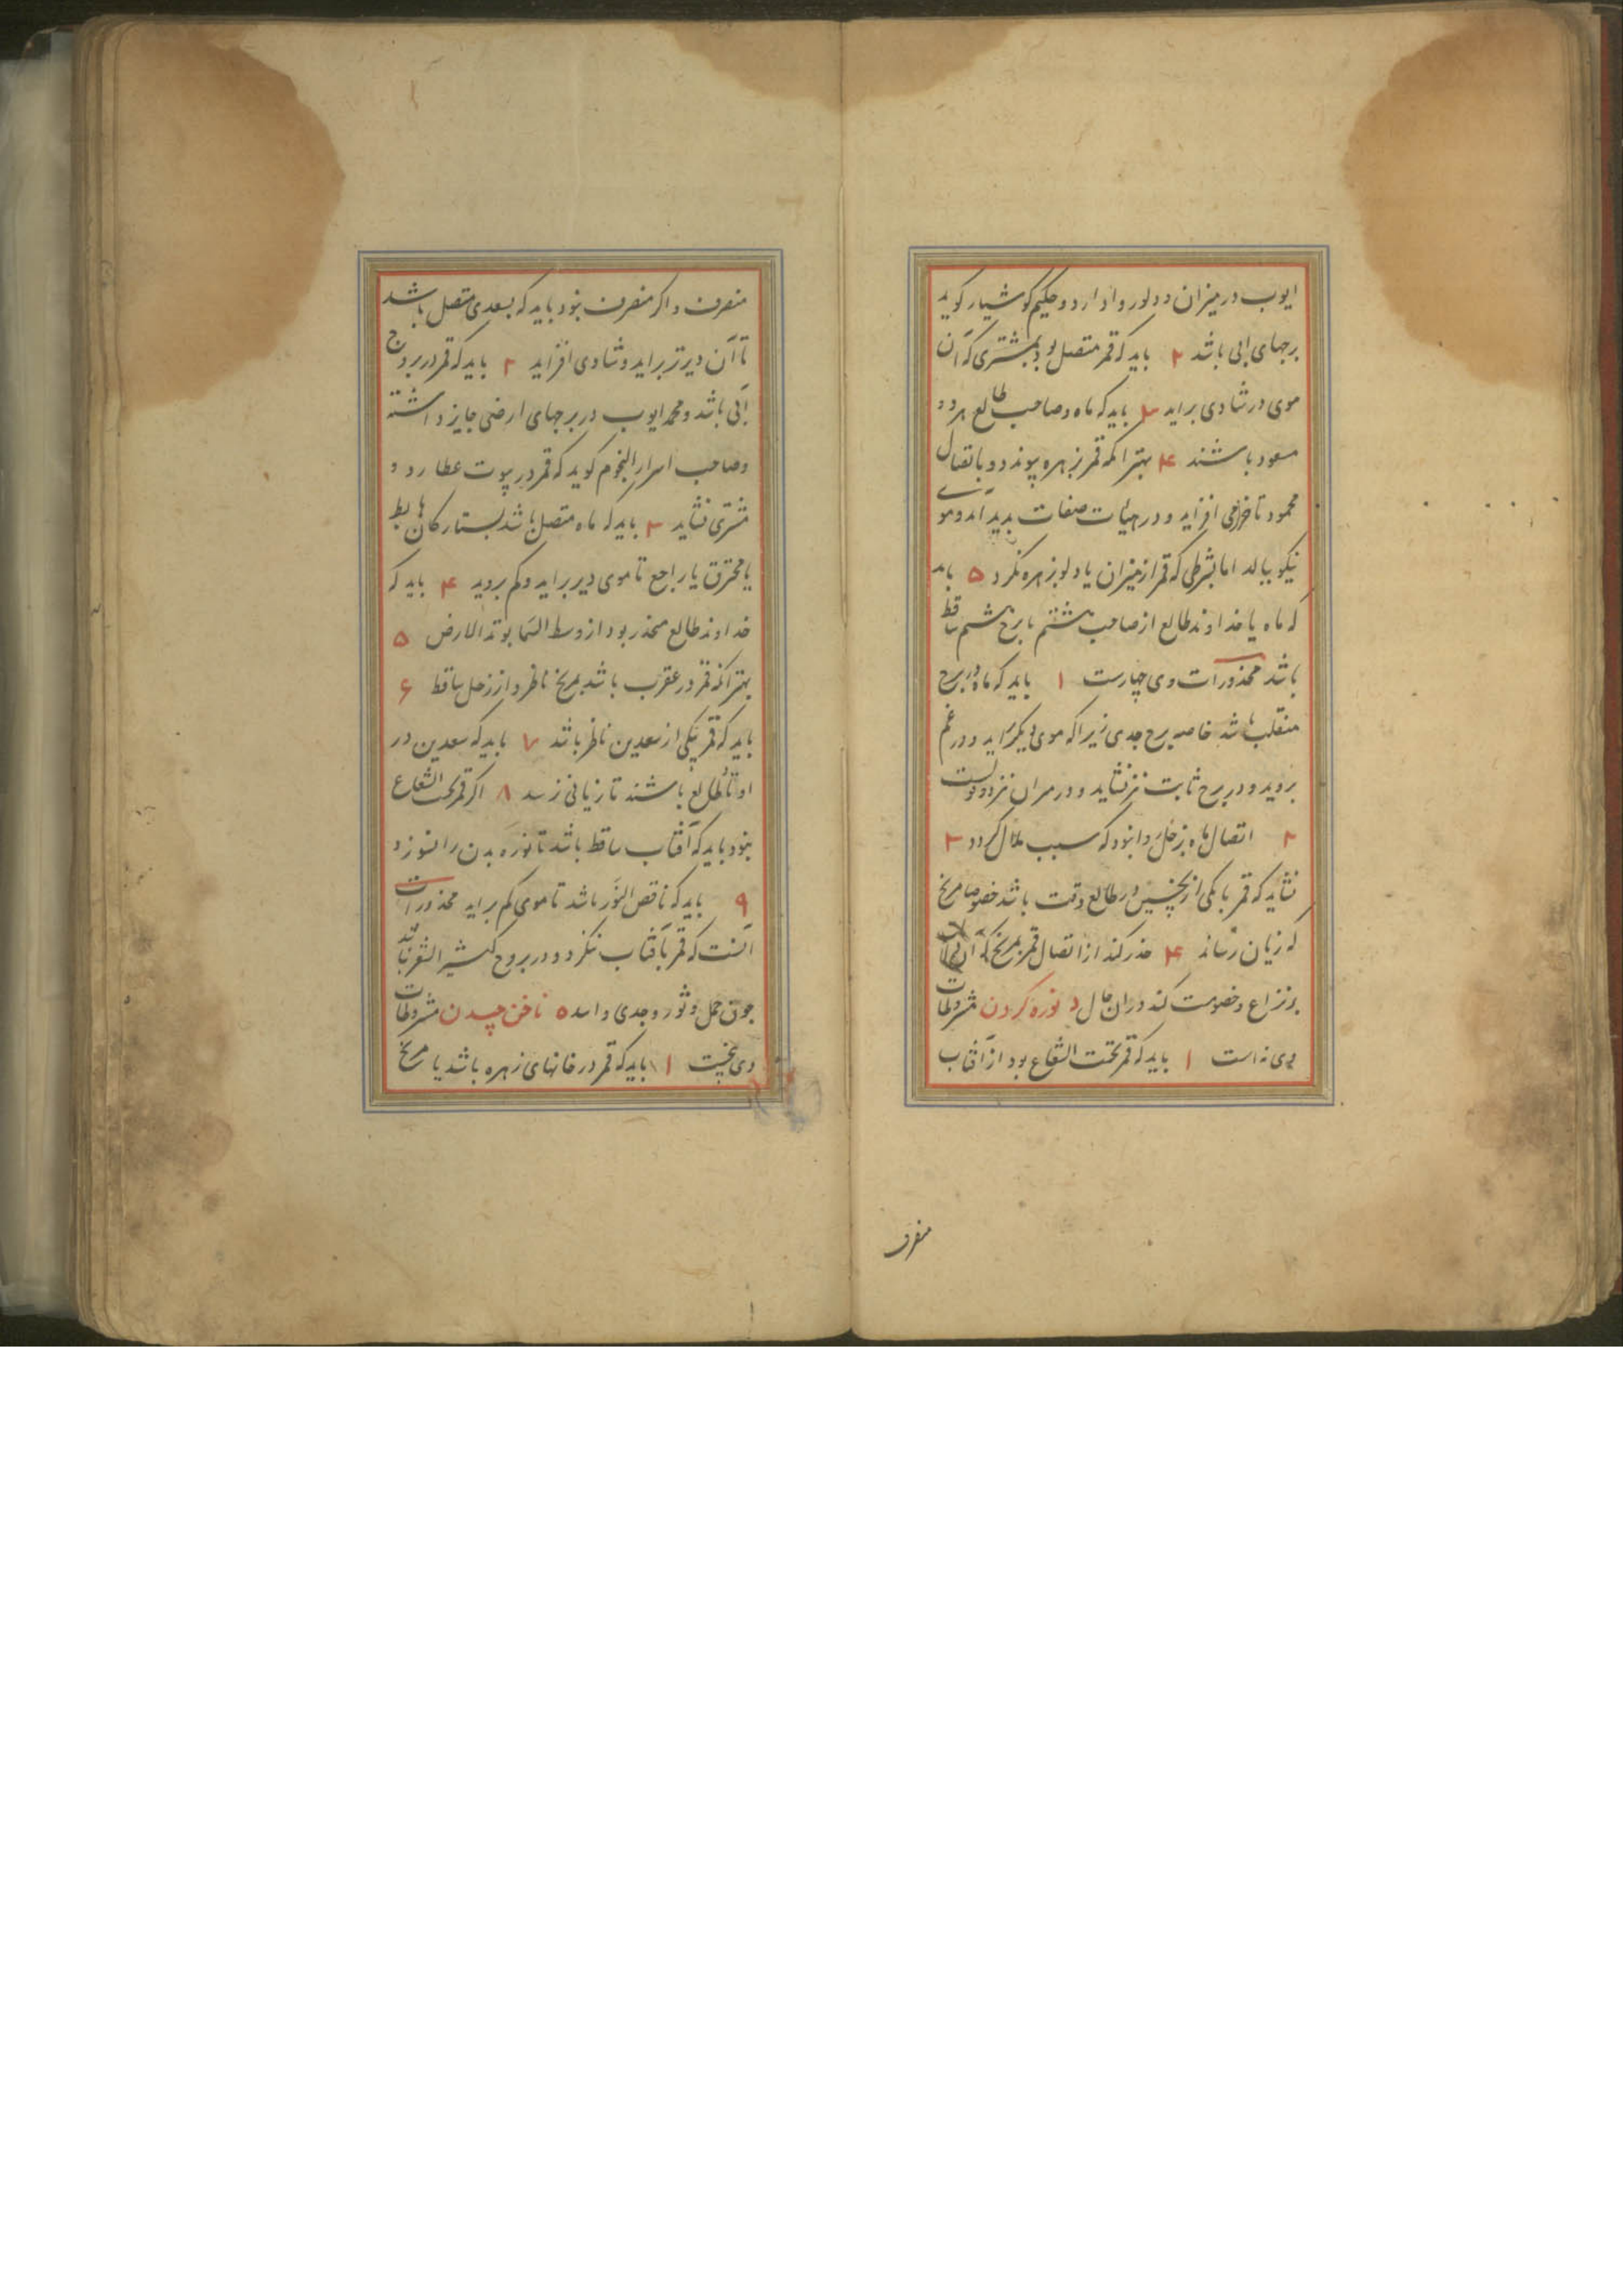 ایوب در میزان و دلو روا دارد و حکیم کوشیار کوید
برجهای ابی باشد ۲ باید که قمر متصل بود بمشتری که آن
موی در شادی براید ۳ باید که ماه و صاحب طالع هر دو
مسعود باشند ۴ بهتر انکه قمر بزهره پیوندد و باتصال
محمود تا خرمی افزاید و در هیئات صفات پدید آید و موی
نیکو ببالد اما بشرطی که قمر از میزان یا دلو بزهره نکرد ۵ باید
که ماه یا خداوند طالع از صاحب هشتم یا برج هشتم ساقط
باشد محذورات وی چهارست ۱ باید که ماه در برج
منقلب باشد خاصه برج جدی زیرا که موی دیکر براید و در غم
بروید و در برج ثابت نیز نشاید و در سران نیز
۲ اتصال ماه بزحل روا نبود که سبب ملال کردد ۳
نشاید که قمر با یکی از نحسین در طالع وقت باشد خصوصا مریخ
که زیان رساند ۴ حذر کند از اتصال قمر بمریخ که آن
بر نزاع و خصومت کند در ان حال د نوره کردن مشروطات
وی نه است ۱ باید که قمر تحت الشعاع بود از آفتاب
منصرف
منصرف و اکر منصرف نبود باید که بسعدی متصل باشد
تا آن دیرتر براید و شادی افزاید ۲ باید که قمر در بروج
آبی باشد و محمد ایوب در برجهای ارضی جایز داشته
و صاحب اسرار النجوم کوید که قمر در بیوت عطارد و
مشتری نشاید ۳ باید که ماه متصل باشد بستارکان هابط
یا محترق یا راجع تا موی دیر براید و کم بروید ۴ باید که
خداوند طالع منحدر بود از وسط السما بوتد الارض ۵
بهتر انکه قمر در عقرب باشد بمریخ ناظر و از زحل ساقط ۶
باید که قمر بیکی از سعدین ناظر باشد ۷ باید که سعدین در
اوتاد طالع باشند تا زیانی نرسد ۸ اکر قمر تحت الشعاع
نبود باید که آفتاب ساقط باشد تا نوره بدن را نسوزد
۹ باید که ناقص النور باشد تا موی کم براید محذورات
آنست که قمر بآفتاب ننکرد و در بروج کثیر الشعر نباشد
چون حمل و ثور و جدی و اسد ه ناخن چیدن مشروطات
وی پنجست ۱ باید که قمر در خانهای زهره باشد یا مریخ